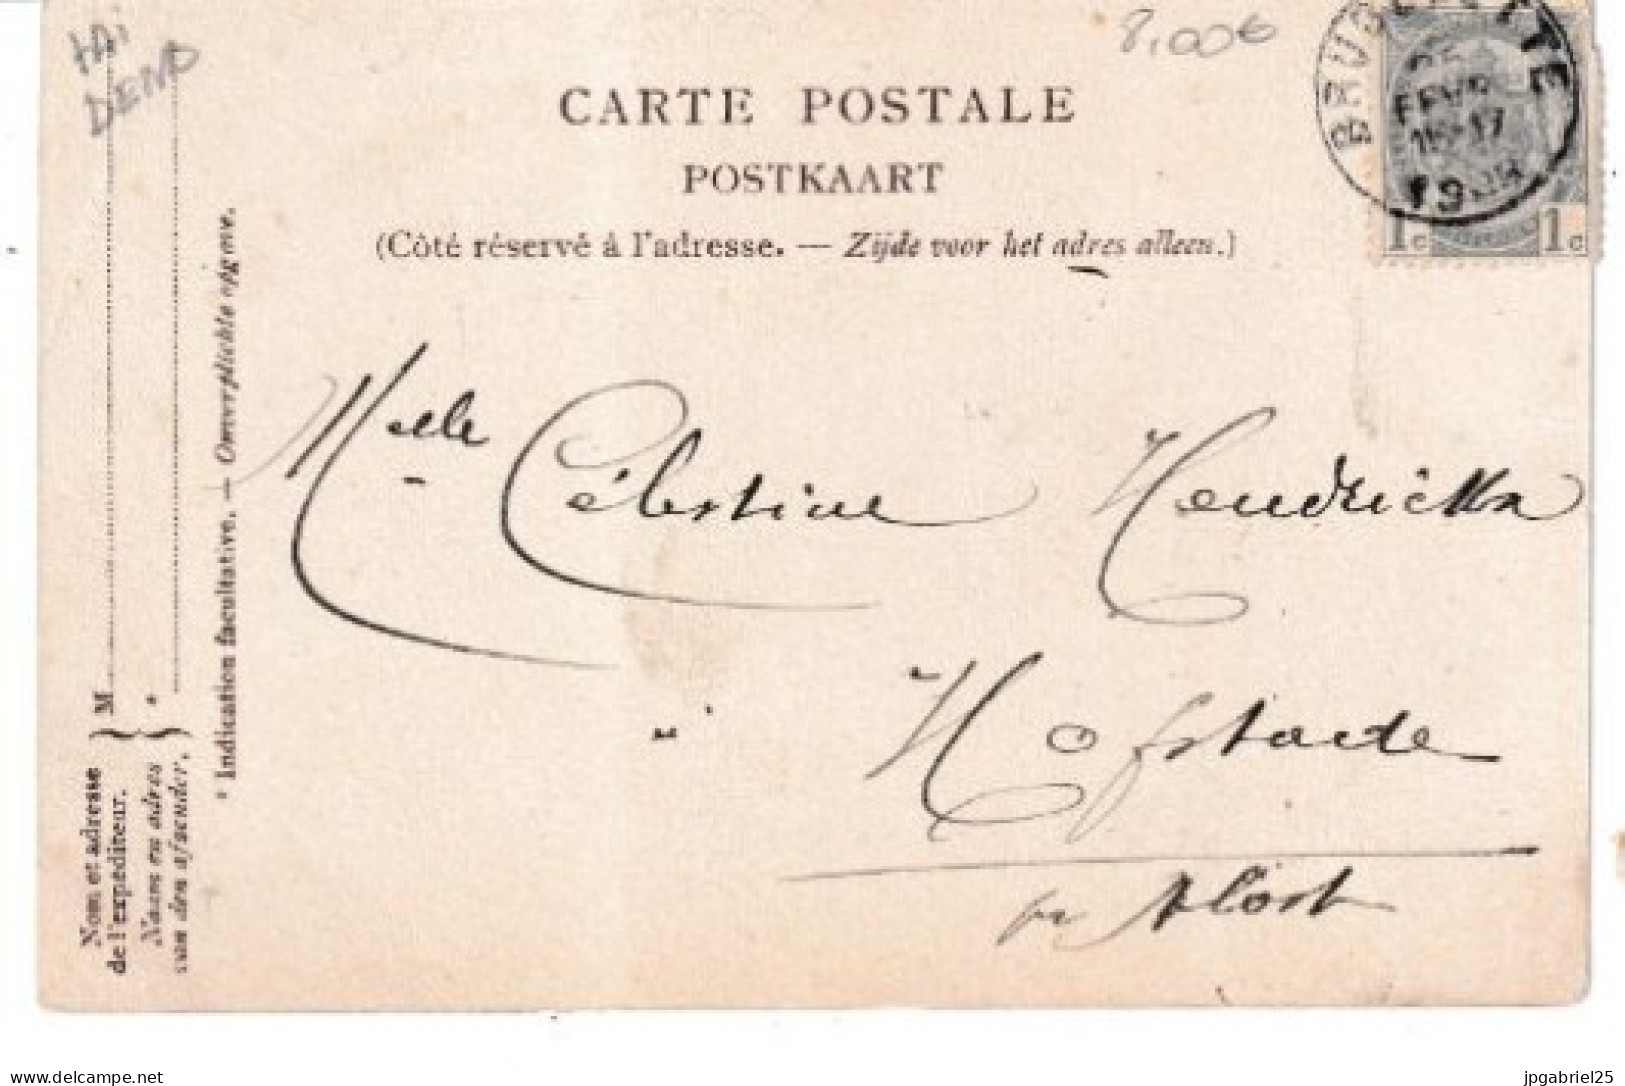 HAI
DEMO
8,00€
CARTE POSTALE
POSTKAART
(Côté réservé à l'adresse. — Zijde voor het adres alleen.)
BRUGELETTE
FEVR
1908
1c 1c
Melle Célestine Hendrickx
Hofstade
pr Alost
Nom et adresse
de l'expéditeur.
M
Naam en adres
van den afzender.
* Indication facultative. — Onverplichte opgave.
delcampe.net
jpgabriel25